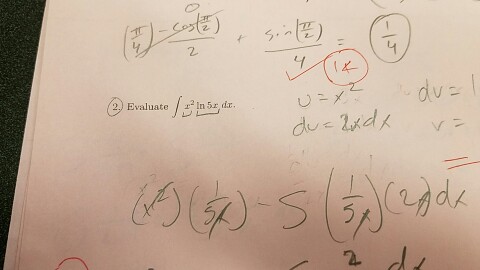 0
(π/4) -cos(π/2)/2 + sin(π/2)/4 = 1/4
2. Evaluate ∫ x² ln 5x dx.
u = x² dv = 1
du = 2xdx v =
(x²)(1/5x) - S (1/5x)(2x)dx
2 dx